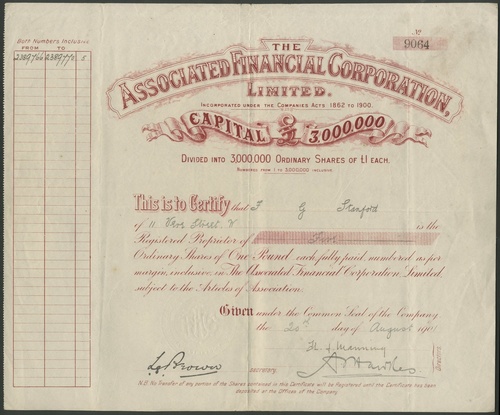 Both Numbers Inclusive
FROM TO
5
No
9064
THE
ASSOCIATED FINANCIAL CORPORATION,
LIMITED.
INCORPORATED UNDER THE COMPANIES ACTS 1862 TO 1900.
CAPITAL £ 3,000,000
DIVIDED INTO 3,000,000 ORDINARY SHARES OF £1 EACH.
NUMBERED FROM 1 TO 3,000,000 INCLUSIVE.
This is to Certify that F G Stanford
of 11 Street W is the
Registered Proprietor of Five
Ordinary Shares of One Pound each, fully paid, numbered as per
margin, inclusive, in The Associated Financial Corporation, Limited,
subject to the Articles of Association.
Given under the Common Seal of the Company
the day of August 190
H. J. Manning
Brown SECRETARY. Hawkes
N.B. No Transfer of any portion of the Shares comprised in this Certificate will be Registered until the Certificate has been
deposited at the Offices of the Company.